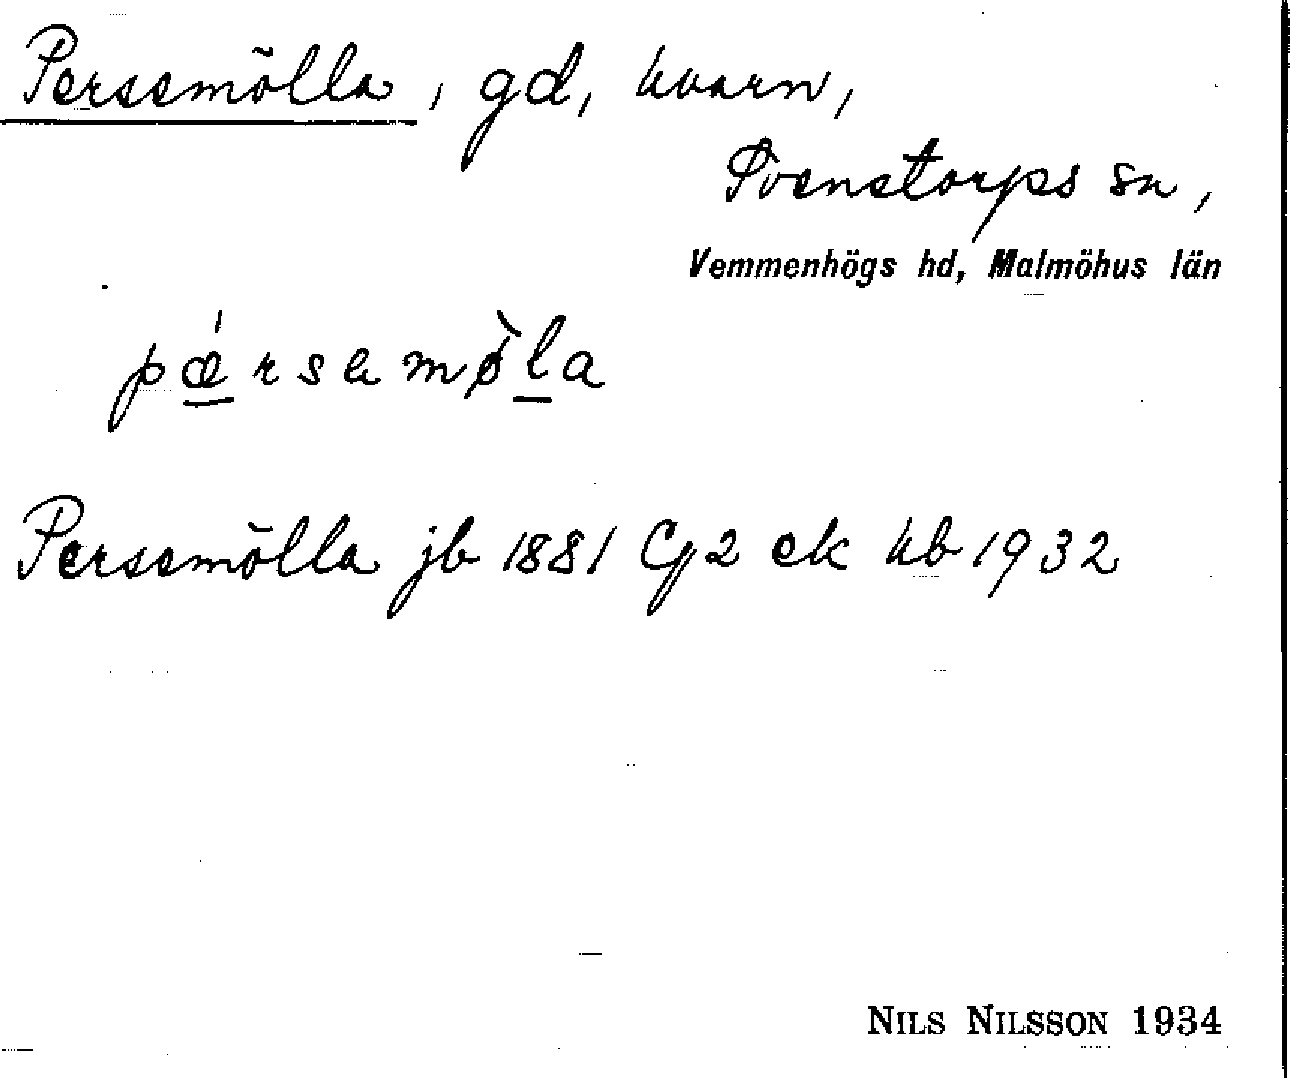 Persemölla, gd, kvarn,
Svenstorps sn,
Vemmenhögs hd, Malmöhus län
pǽrsamø̀la
Persemölla jb 1881 Cg2 ek kb 1932
NILS NILSSON 1934